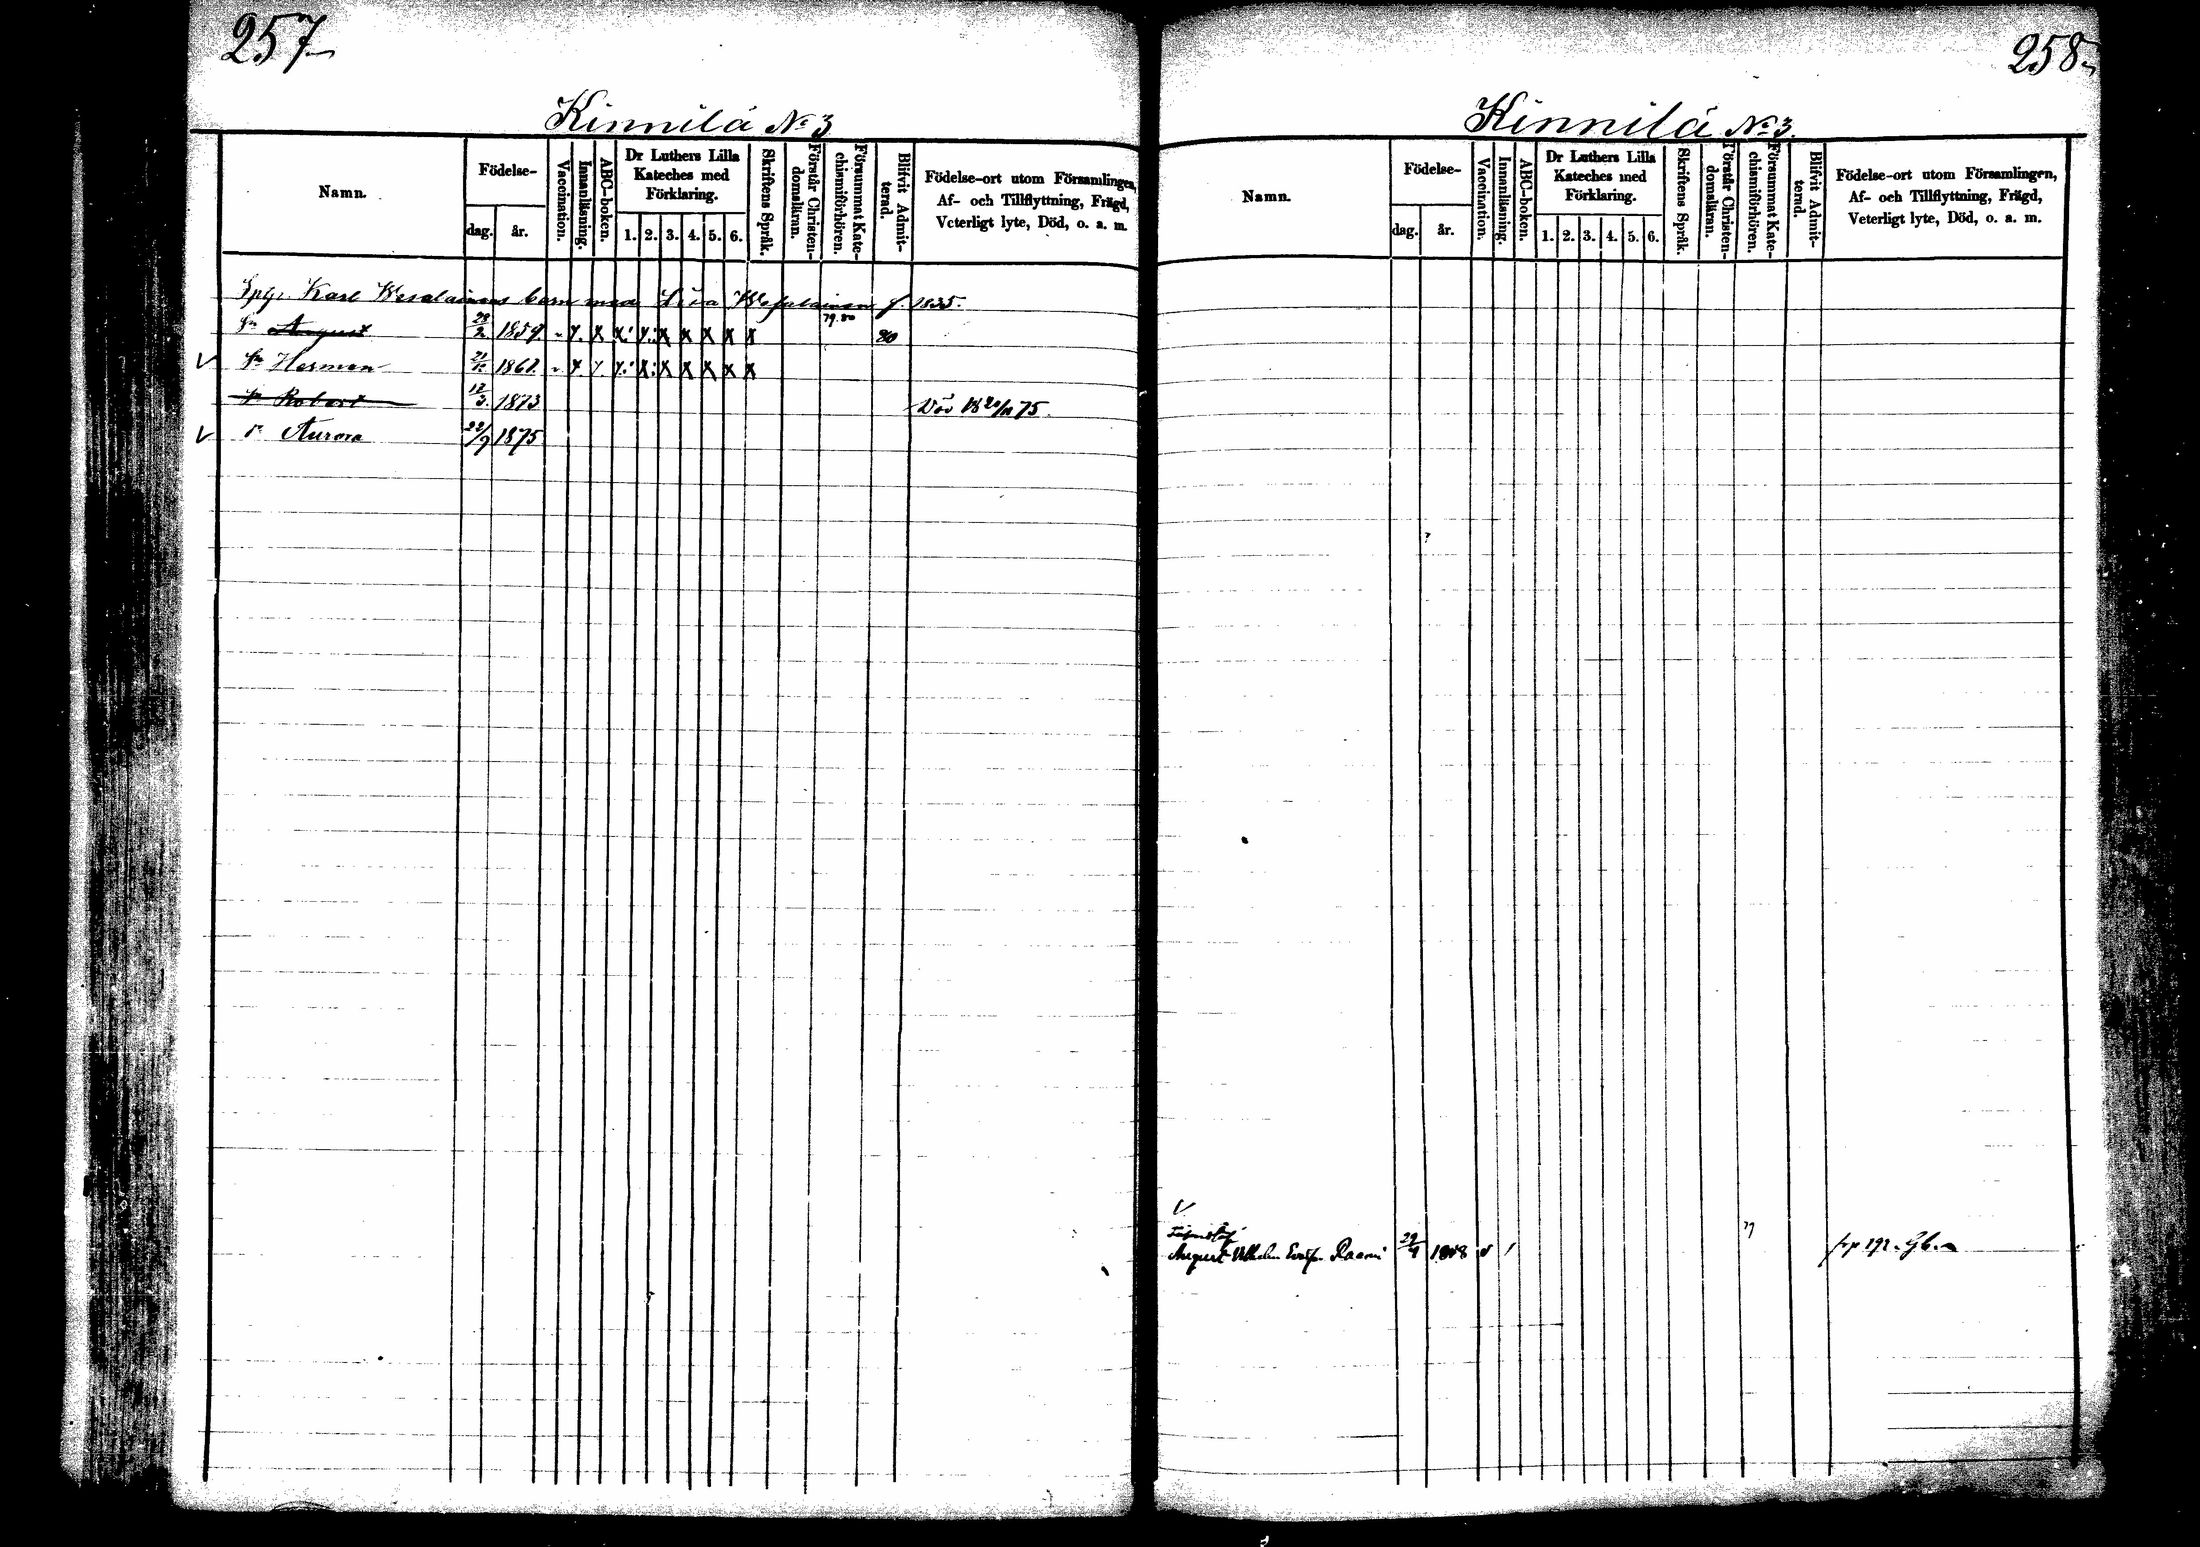 257
Kinnilä No 3
Namn.
Födelse-
dag.
år.
Vaccination.
Innanläsning.
ABC-boken.
Dr Luthers Lilla
Kateches med
Förklaring.
1. 2. 3. 4. 5. 6.
Skriftens Språk.
Förstår Christen-
domsläran.
Försummat Kate-
chismiförhören.
Blifvit Admit-
terad.
Födelse-ort utom Församlingen,
Af- och Tillflyttning, Frägd,
Veterligt lyte, Död, o. a. m.
Karl Wesalainens barn med Lisa Wesalainen f. 1835.
Sn August 28/2 1859. 79.80 80
Sn Herman 1861.
Sn Robert 12/3. 1873 Död 75.
Dr Aurora 22/9 1875
258
Kinnilä No 3.
Namn.
Födelse-
dag.
år.
Vaccination.
Innanläsning.
ABC-boken.
Dr Luthers Lilla
Kateches med
Förklaring.
1. 2. 3. 4. 5. 6.
Skriftens Språk.
Förstår Christen-
domsläran.
Försummat Kate-
chismiförhören.
Blifvit Admit-
terad.
Födelse-ort utom Församlingen,
Af- och Tillflyttning, Frägd,
Veterligt lyte, Död, o. a. m.
August Vilhelm Raami 29/4